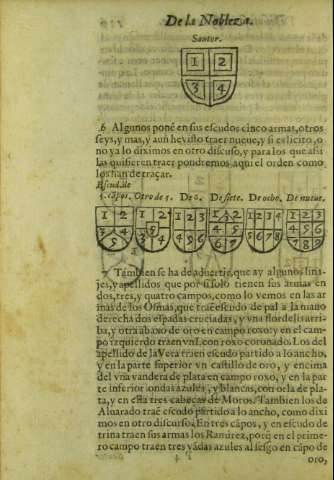 De la Nobleza.
Santor.
1 2
3 4
6 Algunos ponē en sus escudos cinco armas, otros
seys, y mas, y aun he visto traer nueue, y si es licito, o
no ya lo diximos en otro discurso, y para los que assi
las quisieren traer pondremos aqui el orden como
los han de traçar.
Escud. de
5. cāpos. Otro de 5. De 6. De siete. De ocho. De nueue.
7 Tambien se ha de aduertir, que ay algunos lina-
jes, y apellidos que por si solo tienen sus armas en
dos, tres, y quatro campos, como lo vemos en las ar
mas de los Osmas, que traē escudo de pal a la mano
derecha dos espadas cruzadas, y vna flor de lis arri-
ba, y otra abaxo de oro en campo roxo: y en el cam-
po izquierdo traen vn Leon roxo coronado. Los del
apellido de la Vera traen escudo partido a lo ancho,
y en la parte superior vn castillo de oro, y encima
del vna vandera de plata en campo roxo, y en la par
te inferior ondas azules, y blancas, con orla de pla-
ta, y en ella tres cabeças de Moros. Tambien los de
Aluarado traē escudo partido a lo ancho, como dixi
mos en otro discurso. En tres cāpos, y en escudo de
trina traen sus armas los Ramirez, porq̄ en el prime-
ro campo traen tres vādas azules al sesgo en cāpo de
oro,